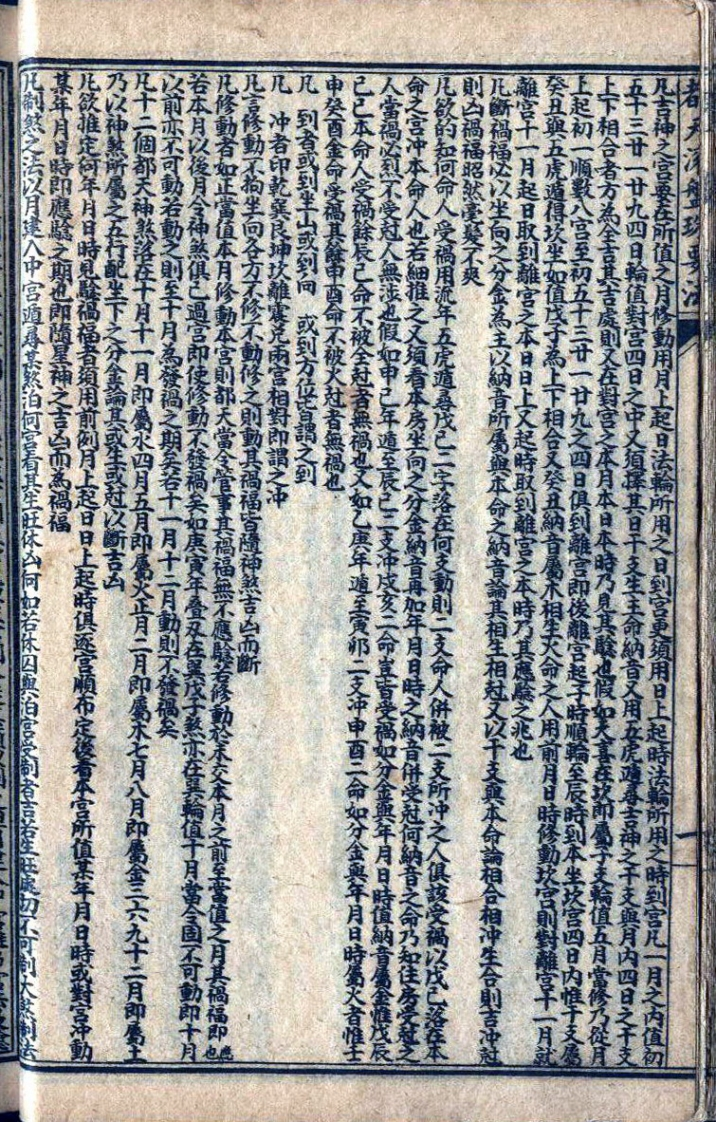 凡吉神之宮要在所值之月修動用月上起日法輪所用之日到宮更須用日上起時法輪所用之時到宮凡一月之內值初
五十三廿一廿九四日輪值對宮四日之中又須擇其日干支生主命納音又用五虎遁尋吉神之干支與月內四日之干支
上下相合者方為全吉其吉處則又在對宮之本月本日本時乃見其驗也假如天喜在坎即屬子支輪值五月當修乃從月
上起初一順數八宮至初五十三廿一廿九之四日俱到離宮即從離宮起子時順輪至辰時到本坐坎宮四日內惟干支屬
癸丑與五虎遁得坎坐如值戊子為上下相合又癸丑納音屬木相生火命之人用前月日時修動坎宮則對離宮十一月就
離宮十一月起日取到離宮之本日日上又起時取到離宮之本時乃其應驗之兆也
凡斷禍福必以坐向之分金為主以納音所屬與本命之納音論其相生相尅又以干支與本命論相合相沖生合則吉沖尅
則凶禍福昭然毫髮不爽
凡欲的知何命人受禍用流年五虎遁尋戊己二字落在何支動則二支命人併被二支所沖之人俱該受禍以戊己落在本
命之宮沖本命人也若細推之又須看本房坐向之分金納音再加年月日時之納音併受尅何納音之命乃如住房受尅之
人當禍必烈不受尅人無涉也假如申己年遁至辰巳二支沖戌亥二命當受禍如分金與年月日時值納音屬金惟戊辰
己巳本命人受禍餘辰巳命不被金尅者無禍也又如乙庚年遁至寅卯二支沖申酉二命如分金與年月日時屬火者惟壬
申癸酉金命受禍其餘申酉命不被火尅者無禍也
凡 到者或到坐山或到向 或到方位皆謂之到
凡 沖者即乾巽艮坤坎離震兌兩宮相對即謂之沖
凡言修動不拘坐向各方不修不動修之則動其禍福皆隨神煞吉凶而斷
凡修動者如正當值本月修動本宮則都天當令管事其禍福無不應驗若修動於未交本月之前至當值之月其禍福即應也
若本月以後月令神煞俱已過宮即使修動不發禍矣如庚寅年疊刃在巽戊子煞亦在巽輪值十月當令固不可動即十月
以前亦不可動若動之則至十月為發禍之期矣若十一月十二月動則不發禍矣
凡十二個都天神煞落在十月十一月即屬水四月五月即屬火正月二月即屬木七月八月即屬金三六九十二月即屬土
乃以神煞所屬之五行配坐下之分金論其或生或尅以斷吉凶
凡欲推定何年月日時見驗禍福者須用前例月上起日日上起時俱逐宮順布定後看本宮所值某年月日時或對宮沖動
某年月日時即應驗之期也即隨星神之吉凶而為禍福
凡制煞之法以月建入中宮遁尋某煞泊何宮看其生旺休囚何如若休囚與泊宮受制者吉若生旺處切不可制